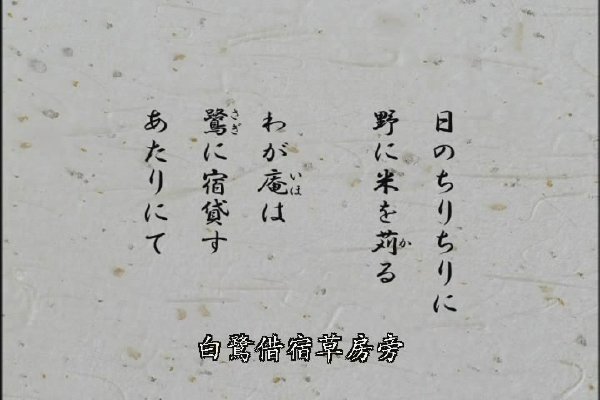 日のちりちりに
野に米を苅る
わが庵は
鷺に宿貸す
あたりにて
白鷺借宿草房旁